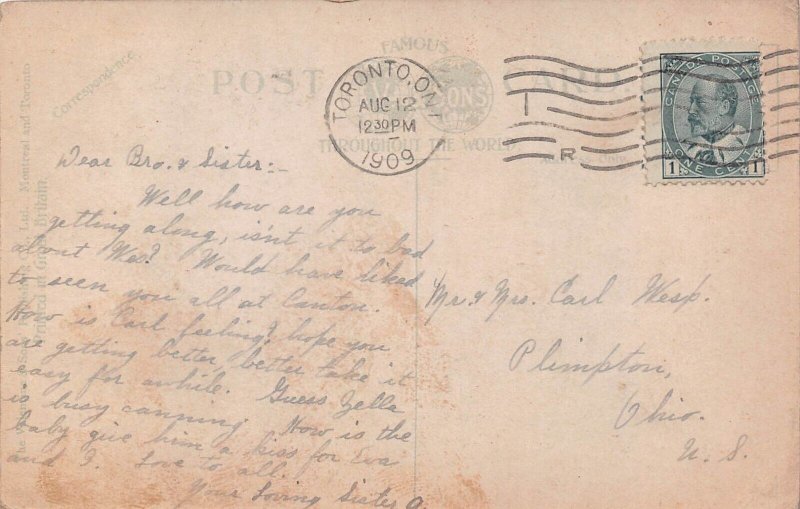 Correspondence
FAMOUS
POST CARD
THROUGHOUT THE WORLD
SONS
Montreal and Toronto
TORONTO, ONT
AUG 12
12 30 PM
1909
R
CANADA POSTAGE
1 ONE CENT 1
Dear Bro. & Sister:-
Well how are you
getting along, isn't it to bad
about Wes? Would have liked
to seen you all at Canton.
How is Carl feeling? hope you
are getting better better take it
easy for awhile. Guess Zella
is busy canning. How is the
baby give him a kiss for Eva
and I. Love to all.
Your Loving Sister O.
Mr. & Mrs. Carl Wesp.
Plimpton,
Ohio.
U. S.